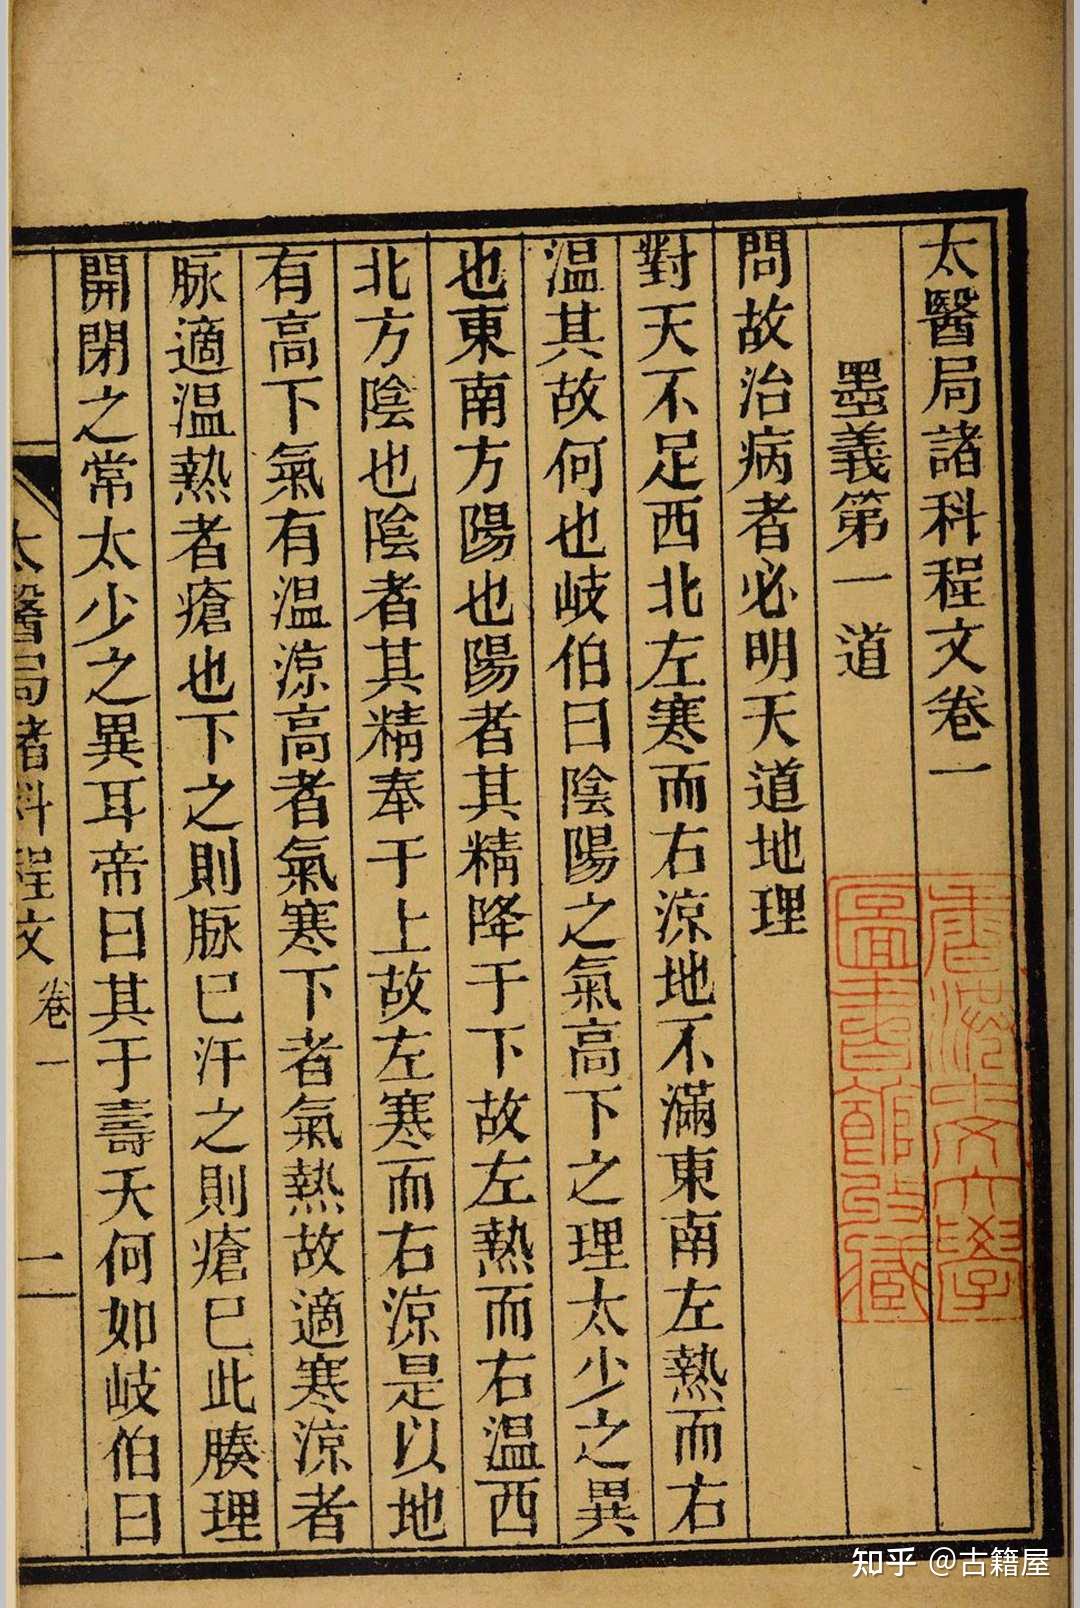 太醫局諸科程文卷一
墨義第一道
問故治病者必明天道地理
對天不足西北左寒而右涼地不滿東南左熱而右
温其故何也岐伯曰陰陽之氣高下之理太少之異
也東南方陽也陽者其精降于下故左熱而右温西
北方陰也陰者其精奉于上故左寒而右涼是以地
有高下氣有温涼高者氣寒下者氣熱故適寒涼者
脉適温熱者瘡也下之則脉巳汗之則瘡巳此腠理
開閉之常太少之異耳帝曰其于壽夭何如岐伯曰
太醫局諸科程文 卷一 一
知乎 @古籍屋